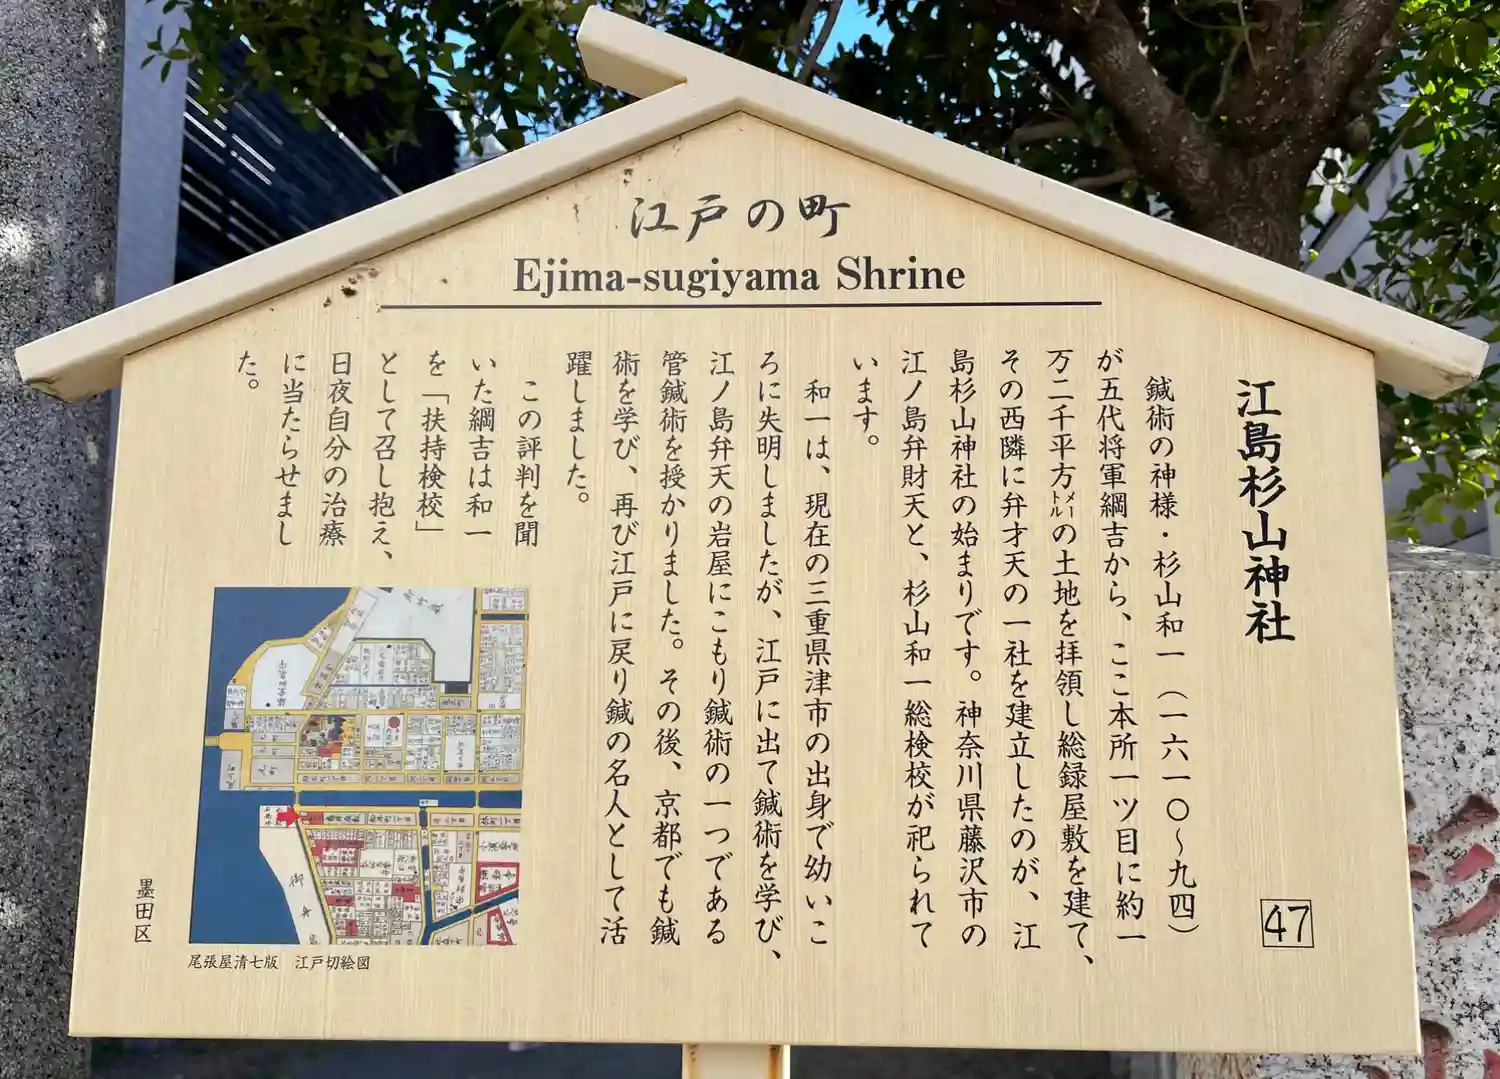 江戸の町
Ejima-sugiyama Shrine
江島杉山神社
47
鍼術の神様・杉山和一（一六一〇〜九四）
が五代将軍綱吉から、ここ本所一ツ目に約一
万二千平方メートルの土地を拝領し総録屋敷を建て、
その西隣に弁才天の一社を建立したのが、江
島杉山神社の始まりです。神奈川県藤沢市の
江ノ島弁財天と、杉山和一総検校が祀られて
います。
和一は、現在の三重県津市の出身で幼いこ
ろに失明しましたが、江戸に出て鍼術を学び、
江ノ島弁天の岩屋にこもり鍼術の一つである
管鍼術を授かりました。その後、京都でも鍼
術を学び、再び江戸に戻り鍼の名人として活
躍しました。
この評判を聞
いた綱吉は和一
を「扶持検校」
として召し抱え、
日夜自分の治療
に当たらせまし
た。
尾張屋清七版　江戸切絵図
墨田区